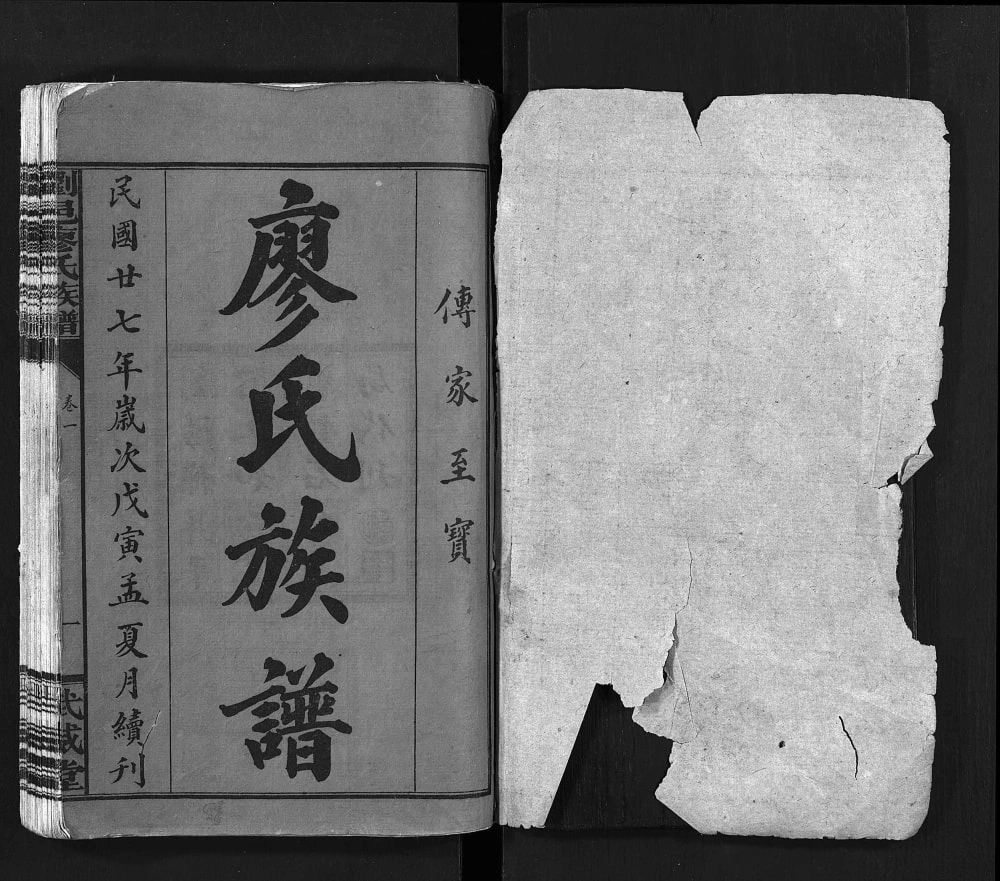 傳家至寶
廖氏族譜
民國廿七年歲次戊寅孟夏月續刊
瀏邑廖氏族譜
卷一
一
武威堂